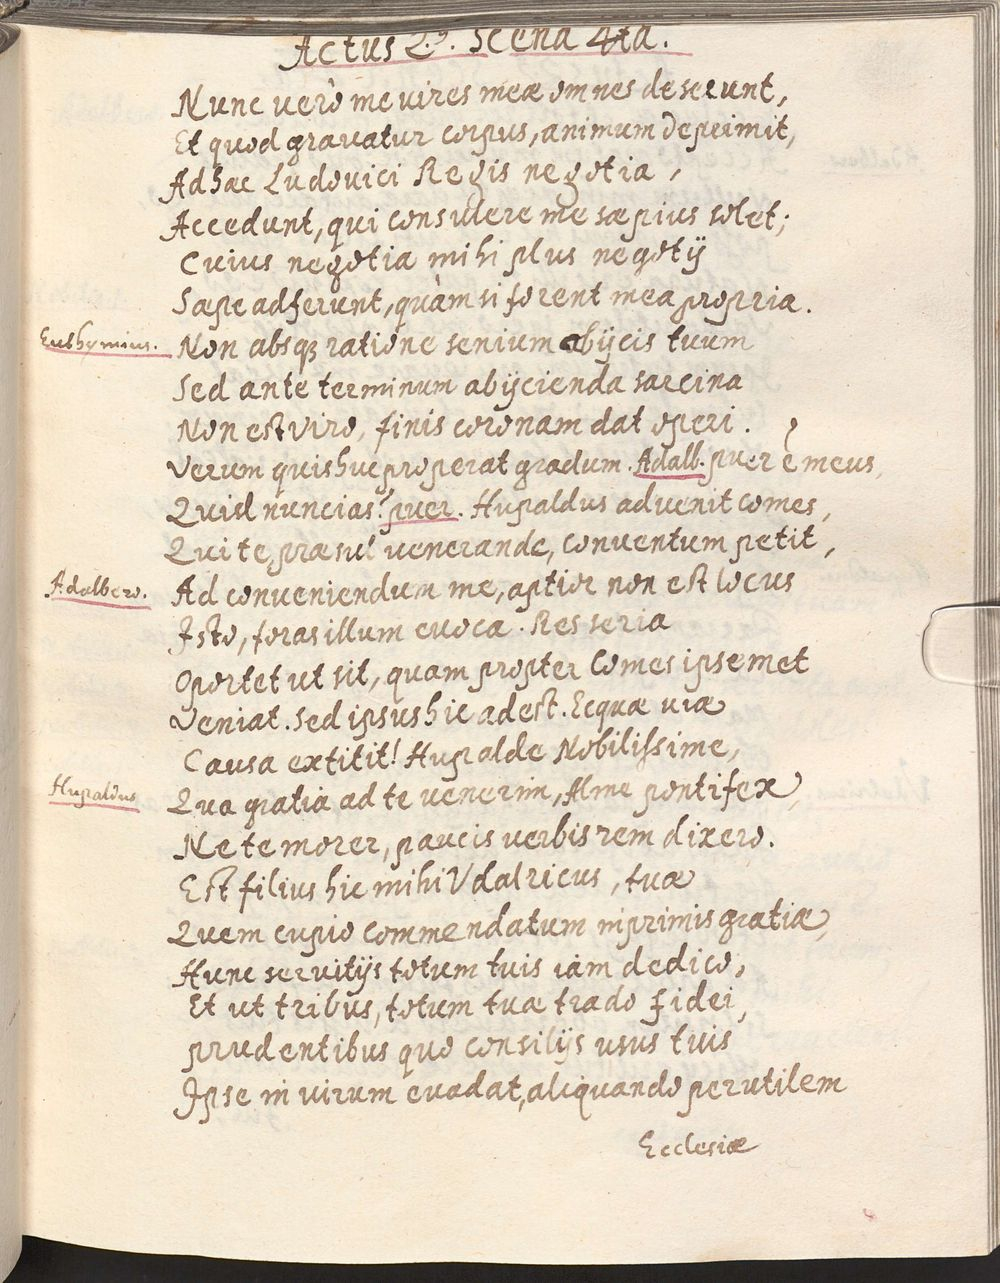 Actus 2.us. Scena 4ta.
Nunc verò me vires meæ omnes deserunt,
Et quod gravatur corpus, animum deprimit,
Ad hæc Ludovici Regis negotia,
Accedunt, qui consulere me sæpius solet;
Cuius negotia mihi plus negotij
Sæpe adferunt, quàm si forent mea propria.
Euthymius. Non absq; ratione senium abijcis tuum
Sed ante terminum abijcienda sarcina
Non est viro, finis coronam dat operi.
Verum quis huc properat gradum. Adalb. puer è meus,
Quid nuncias? puer. Hupaldus advenit comes,
Qui te, præsul venerande, conventum petit,
Adalbero. Ad conveniendum me, aptior non est locus
Isto, foras illum evoca. Res seria
Oportet ut sit, quam propter Comes ipsemet
Veniat. Sed ipsus hic adest. Ecquæ viæ
Causa extitit! Hupalde Nobilissime,
Hupaldus Qua gratia ad te venerim, Alme pontifex,
Ne te morer, paucis verbis rem dixero.
Est filius hic mihi Udalricus, tuæ
Quem cupio commendatum inprimis gratiæ,
Hunc servitijs totum tuis iam dedico,
Et ut tribus, totum tuæ trado fidei,
prudentibus quo consilijs usus tuis
Ipse in virum evadat, aliquando perutilem
Ecclesiæ